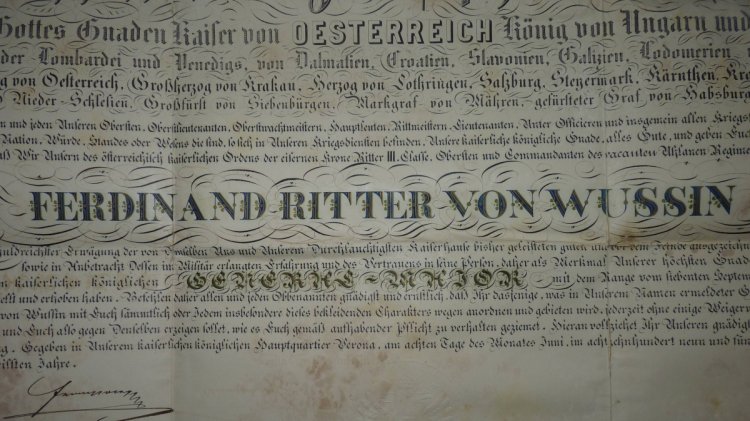 Gottes Gnaden Kaiser von OESTERREICH König von Ungarn und
der Lombardei und Venedigs, von Dalmatien, Croatien, Slavonien, Galizien, Lodomerien
von Oesterreich, Großherzog von Krakau, Herzog von Lothringen, Salzburg, Steyermark, Kärnthen,
Nieder-Schlesien, Großfürst von Siebenbürgen, Markgraf von Mähren, gefürsteter Graf von Habsburg
und jeden Unseren Obersten, Oberstlieutenanten, Oberstwachtmeistern, Hauptleuten, Rittmeistern, Lieutenanten, Unter Officieren und insgemein allen Kriegs
Nation, Würde, Standes oder Wesens die sind, so sich in Unseren Kriegsdiensten befinden, Unsere kaiserliche königliche Gnade, alles Gute, und geben Euch
Wir Unsern des österreichisch kaiserlichen Ordens der eisernen Krone Ritter III. Classe, Obersten und Commandanten des vacanten Uhlanen Regime
FERDINAND RITTER VON WUSSIN
Erwägung der von Demselben Uns und Unserem Durchlauchtigsten Kaiserhause bisher geleisteten guten und vor dem Feinde ausgezeichn
sowie in Anbetracht Dessen im Militär erlangten Erfahrung und des Vertrauens in seine Person, daher als Merkmal Unserer höchsten Gnad
kaiserlichen königlichen GENERAL-MAJOR mit dem Range vom siebenten Septem
und erhoben haben. Befehlen daher allen und jeden Obbenannten gnädigst und ernstlich, daß Ihr dasjenige, was in Unserem Namen ermeldeter G
von Wussin mit Euch sämmtlich oder Jedem insbesondere dieses bekleidenden Charakters wegen anordnen und gebieten wird, jederzeit ohne einige Weiger
und Euch also gegen Denselben erzeigen sollet, wie es Euch gemäß aufhabender Pflicht zu verhalten geziemet. Hieran vollziehet Ihr Unseren gnädigst
Gegeben in Unserem kaiserlichen königlichen Hauptquartier Verona, am achten Tage des Monates Juni, im achtzehnhundert neun und fünf
Jahre.